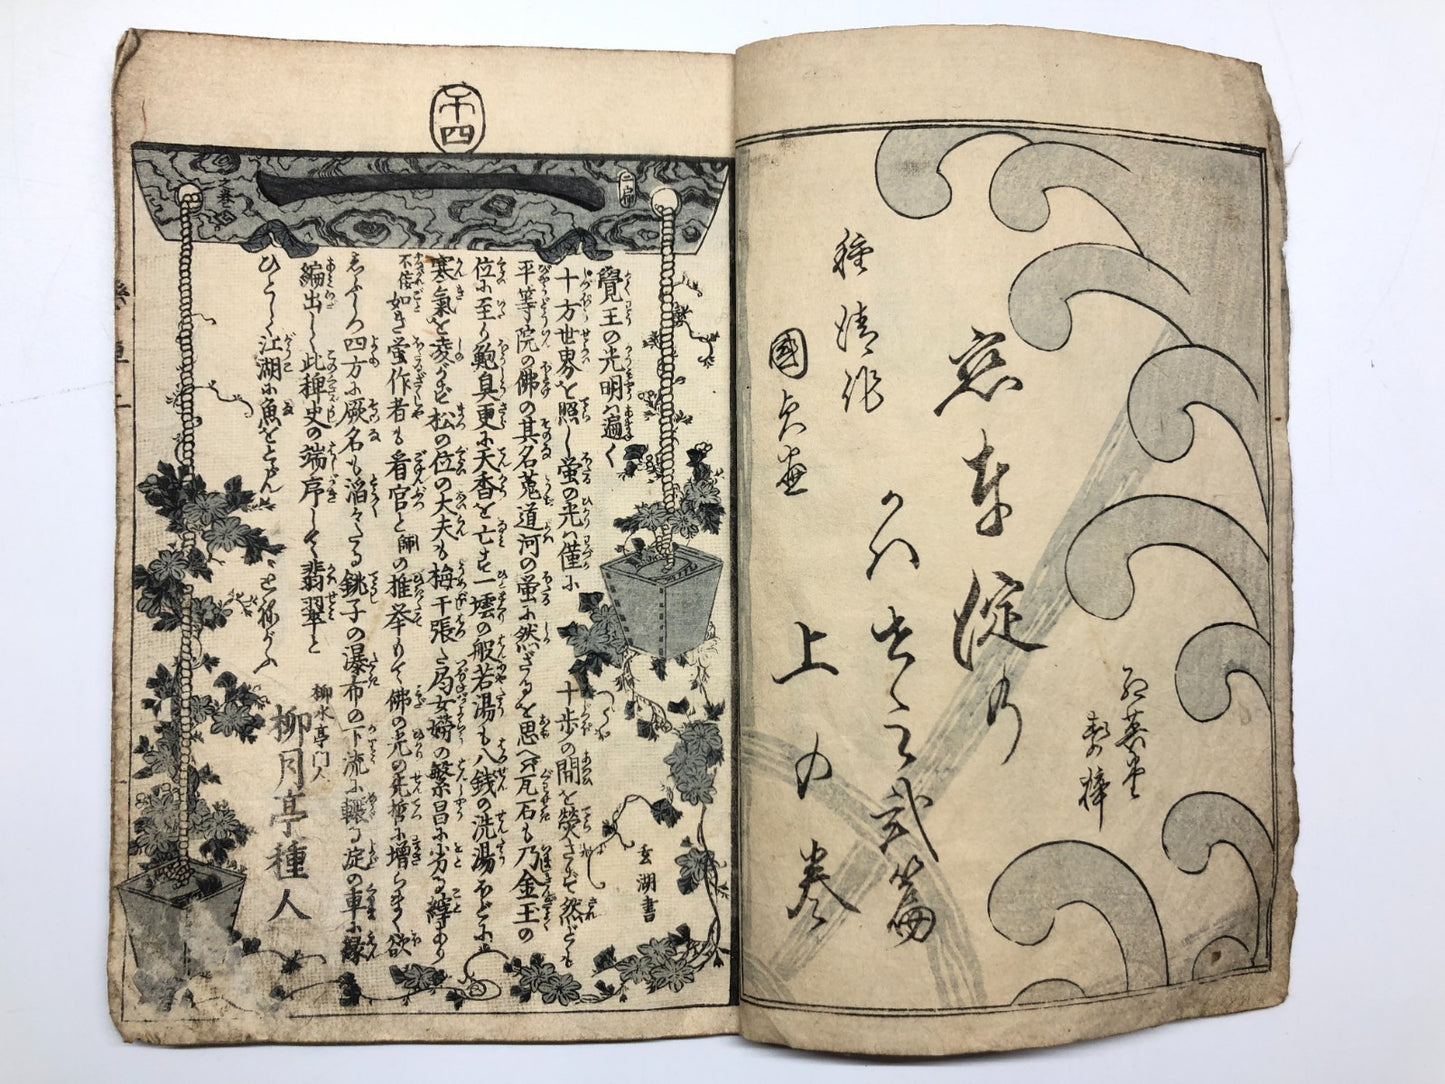 紅英堂
製梓
恋車淀の
かハせ之弐篇
上の巻
種清作
國貞画
十四
二扁
覺王の光明ハ遍く
十方世界を照し螢の光ハ僅に十歩の間を熒さず然ども
平等院の佛の其名莵道河の螢に然ざるを思へバ瓦石も乃金王の
位に至り鮑臭更に天香を亡せ一壜の般若湯も八銭の洗湯ほどに
寒氣を凌げバ松の位の大夫も梅干張た局女蹐の繁昌に劣る縡あり
不侫如き螢作者も看官と師の推挙りて佛の光の先哲に増らまく欲
ゑぶしつ四方に厥名も滔々たる銚子の瀑布の下流に轍る淀の車に縁
編出し此稗史の端序して翡翠と
ひとしく江湖に魚をとらん
とねがふ
柳水亭門人
柳月亭種人
玄湖書